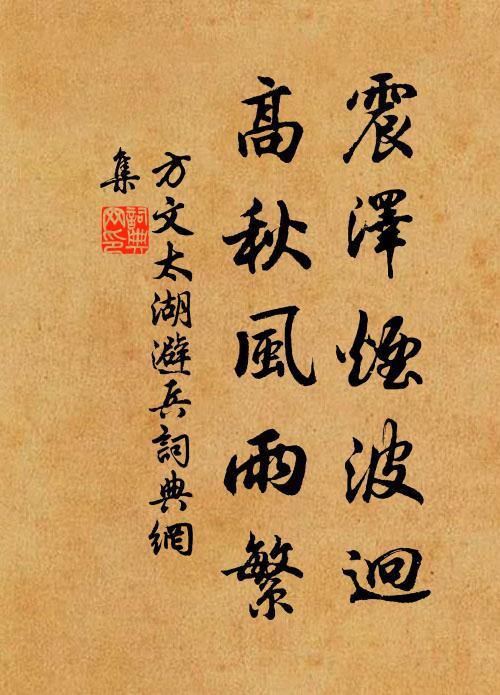 震澤煙波迥
高秋風雨繁
方文太湖避兵詞典網
集
詞典网印